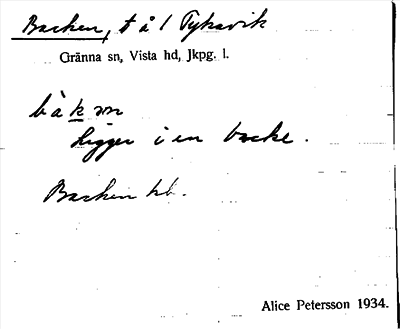 Backen, t å 1 Tykavik
Gränna sn, Vista hd, Jkpg. l.
bàkən
ligger i en backe.
Backen hb.
Alice Petersson 1934.